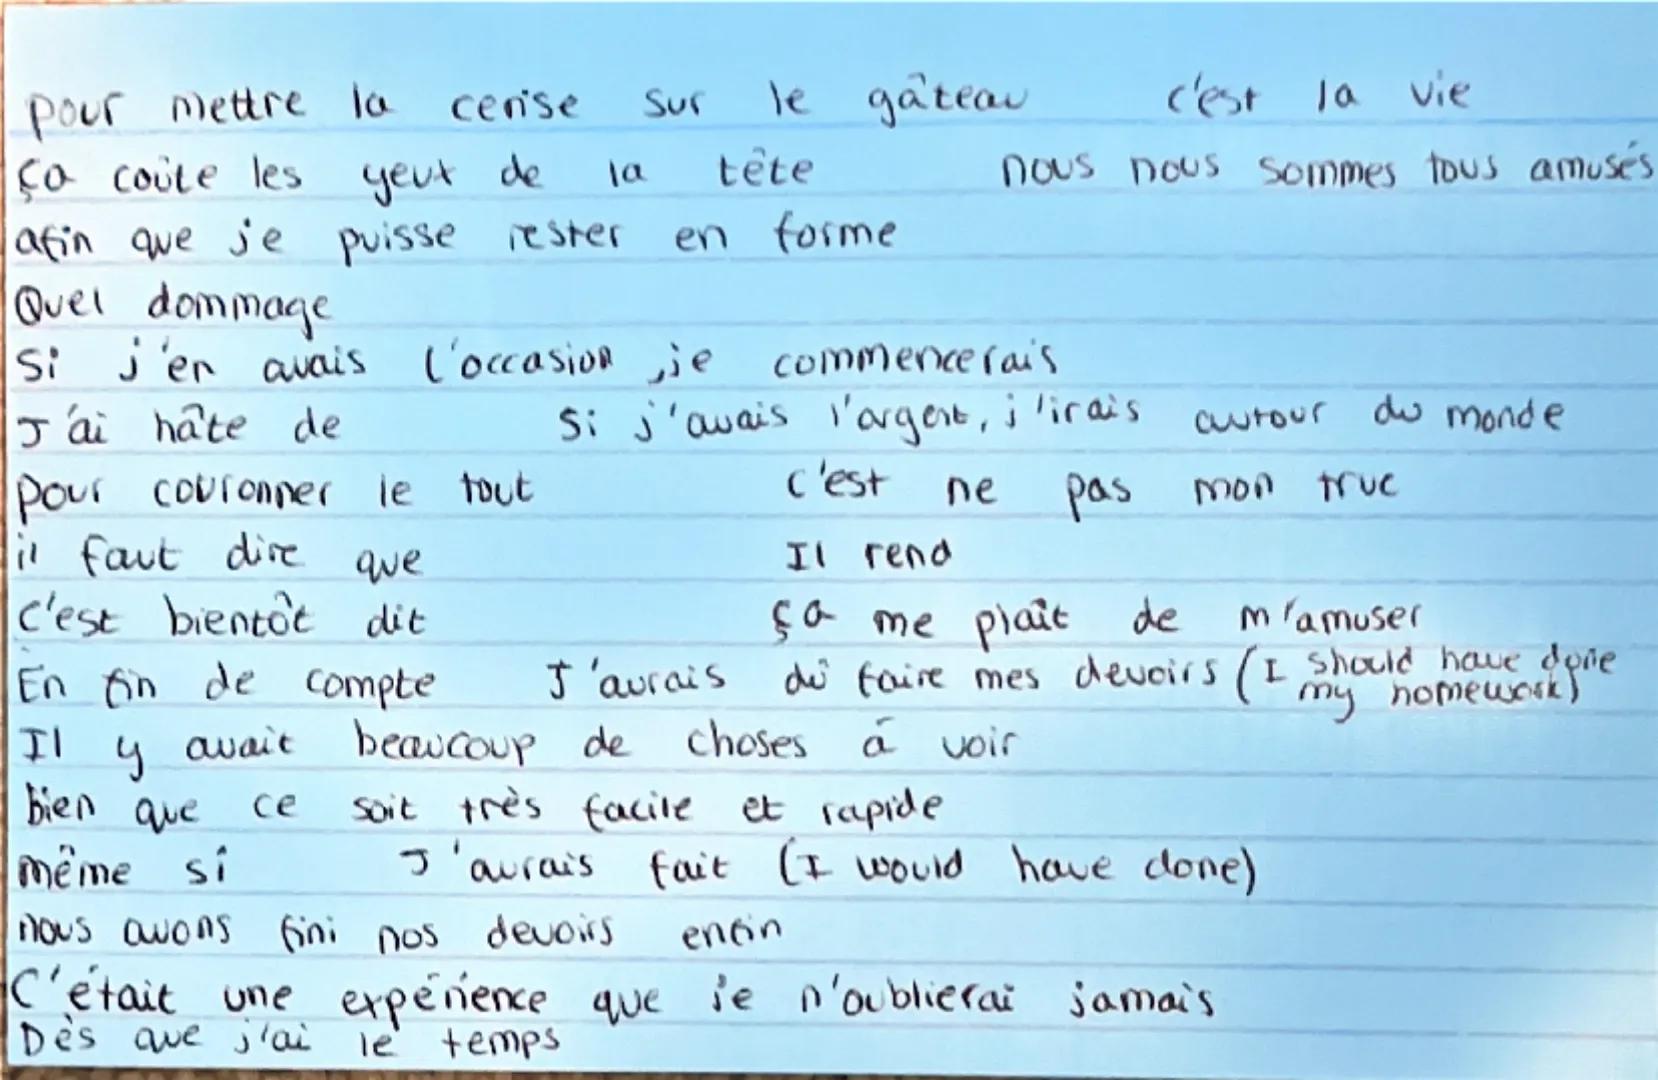 pour mettre la cerise sur le gâteau c'est la vie
ça coûte les yeux de la tête nous nous sommes tous amusés
afin que je puisse rester en forme
Quel dommage
Si j'en avais l'occasion, je commencerais
J'ai hâte de Si j'avais l'argent, j'irais autour du monde
pour couronner le tout c'est ne pas mon truc
il faut dire que Il rend
C'est bientôt dit ça me plaît de m'amuser
En fin de compte J'aurais dû faire mes devoirs (I should have done my homework)
Il y avait beaucoup de choses à voir
bien que ce soit très facile et rapide
même si J'aurais fait (I would have done)
nous avons fini nos devoirs enfin
C'était une expérience que je n'oublierai jamais
Dès que j'ai le temps